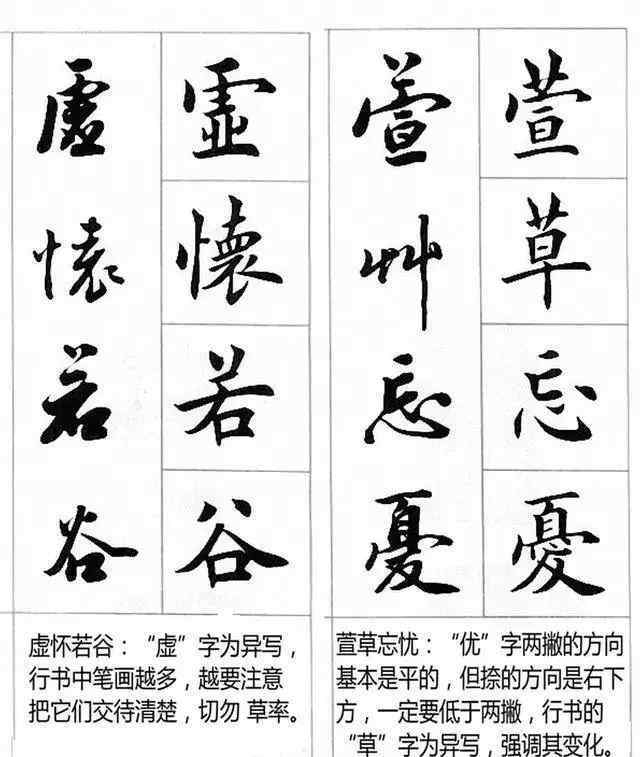 虚懷若谷
虛懷若谷
虚怀若谷：“虚”字为异写，
行书中笔画越多，越要注意
把它们交待清楚，切勿 草率。
萱艸忘憂
萱草忘憂
萱草忘忧：“优”字两撇的方向
基本是平的，但捺的方向是右下
方，一定要低于两撇，行书的
“草”字为异写，强调其变化。